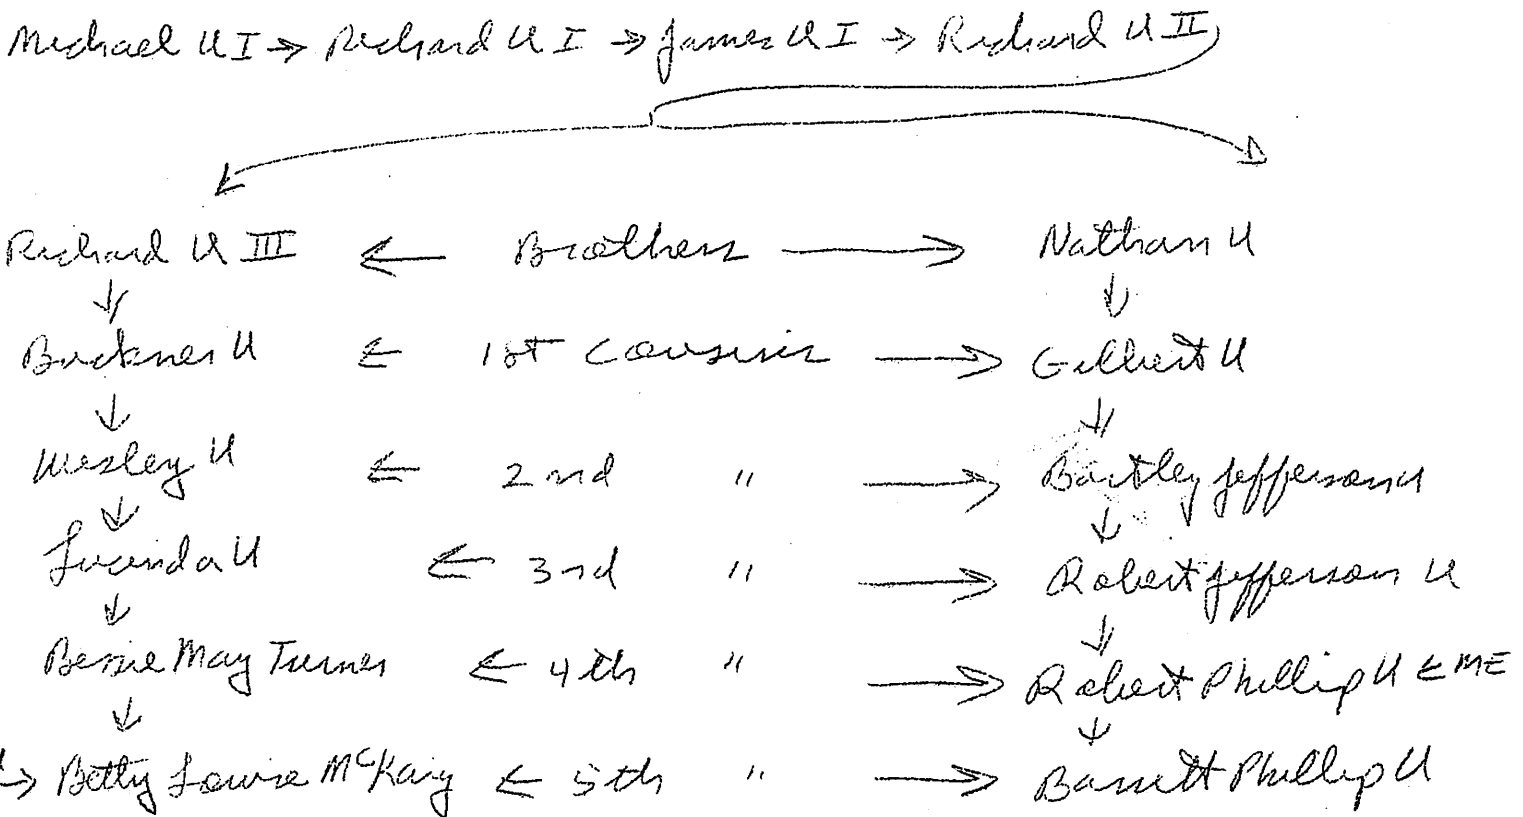 Michael U I → Richard U I → James U I → Richard U II
Richard U III ← Brothers → Nathan U
↓ ↓
Buckner U ← 1st Cousins → Gilbert U
↓ ↓
Wesley U ← 2nd " → Bartley Jefferson U
↓ ↓
Lucinda U ← 3rd " → Robert Jefferson U
↓ ↓
Bessie May Turner ← 4th " → Robert Phillip U ← ME
↓ ↓
→ Betty Louise McKay ← 5th " → Barrett Phillip U